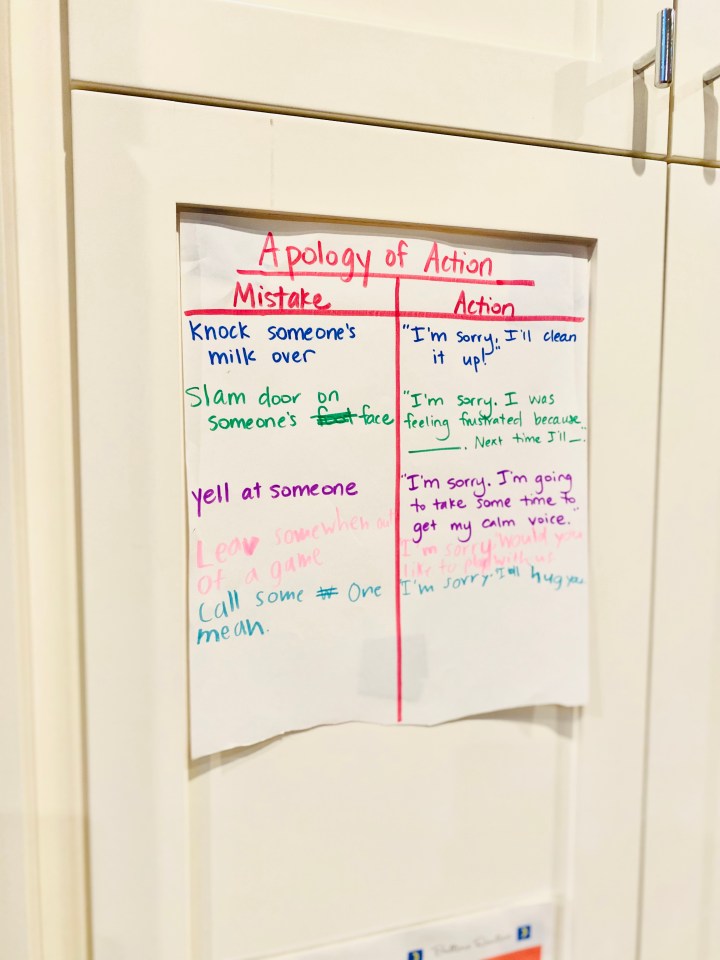 Apology of Action
Mistake
Action
Knock someone's
milk over
"I'm sorry. I'll clean
it up!"
Slam door on
someone's face
"I'm sorry. I was
feeling frustrated because
____. Next time I'll __."
yell at someone
"I'm sorry. I'm going
to take some time to
get my calm voice."
Leav somewhen out
of a game
I'm sorry. Would you
like to play with us
Call some One
mean.
I'm sorry. I'll hug you